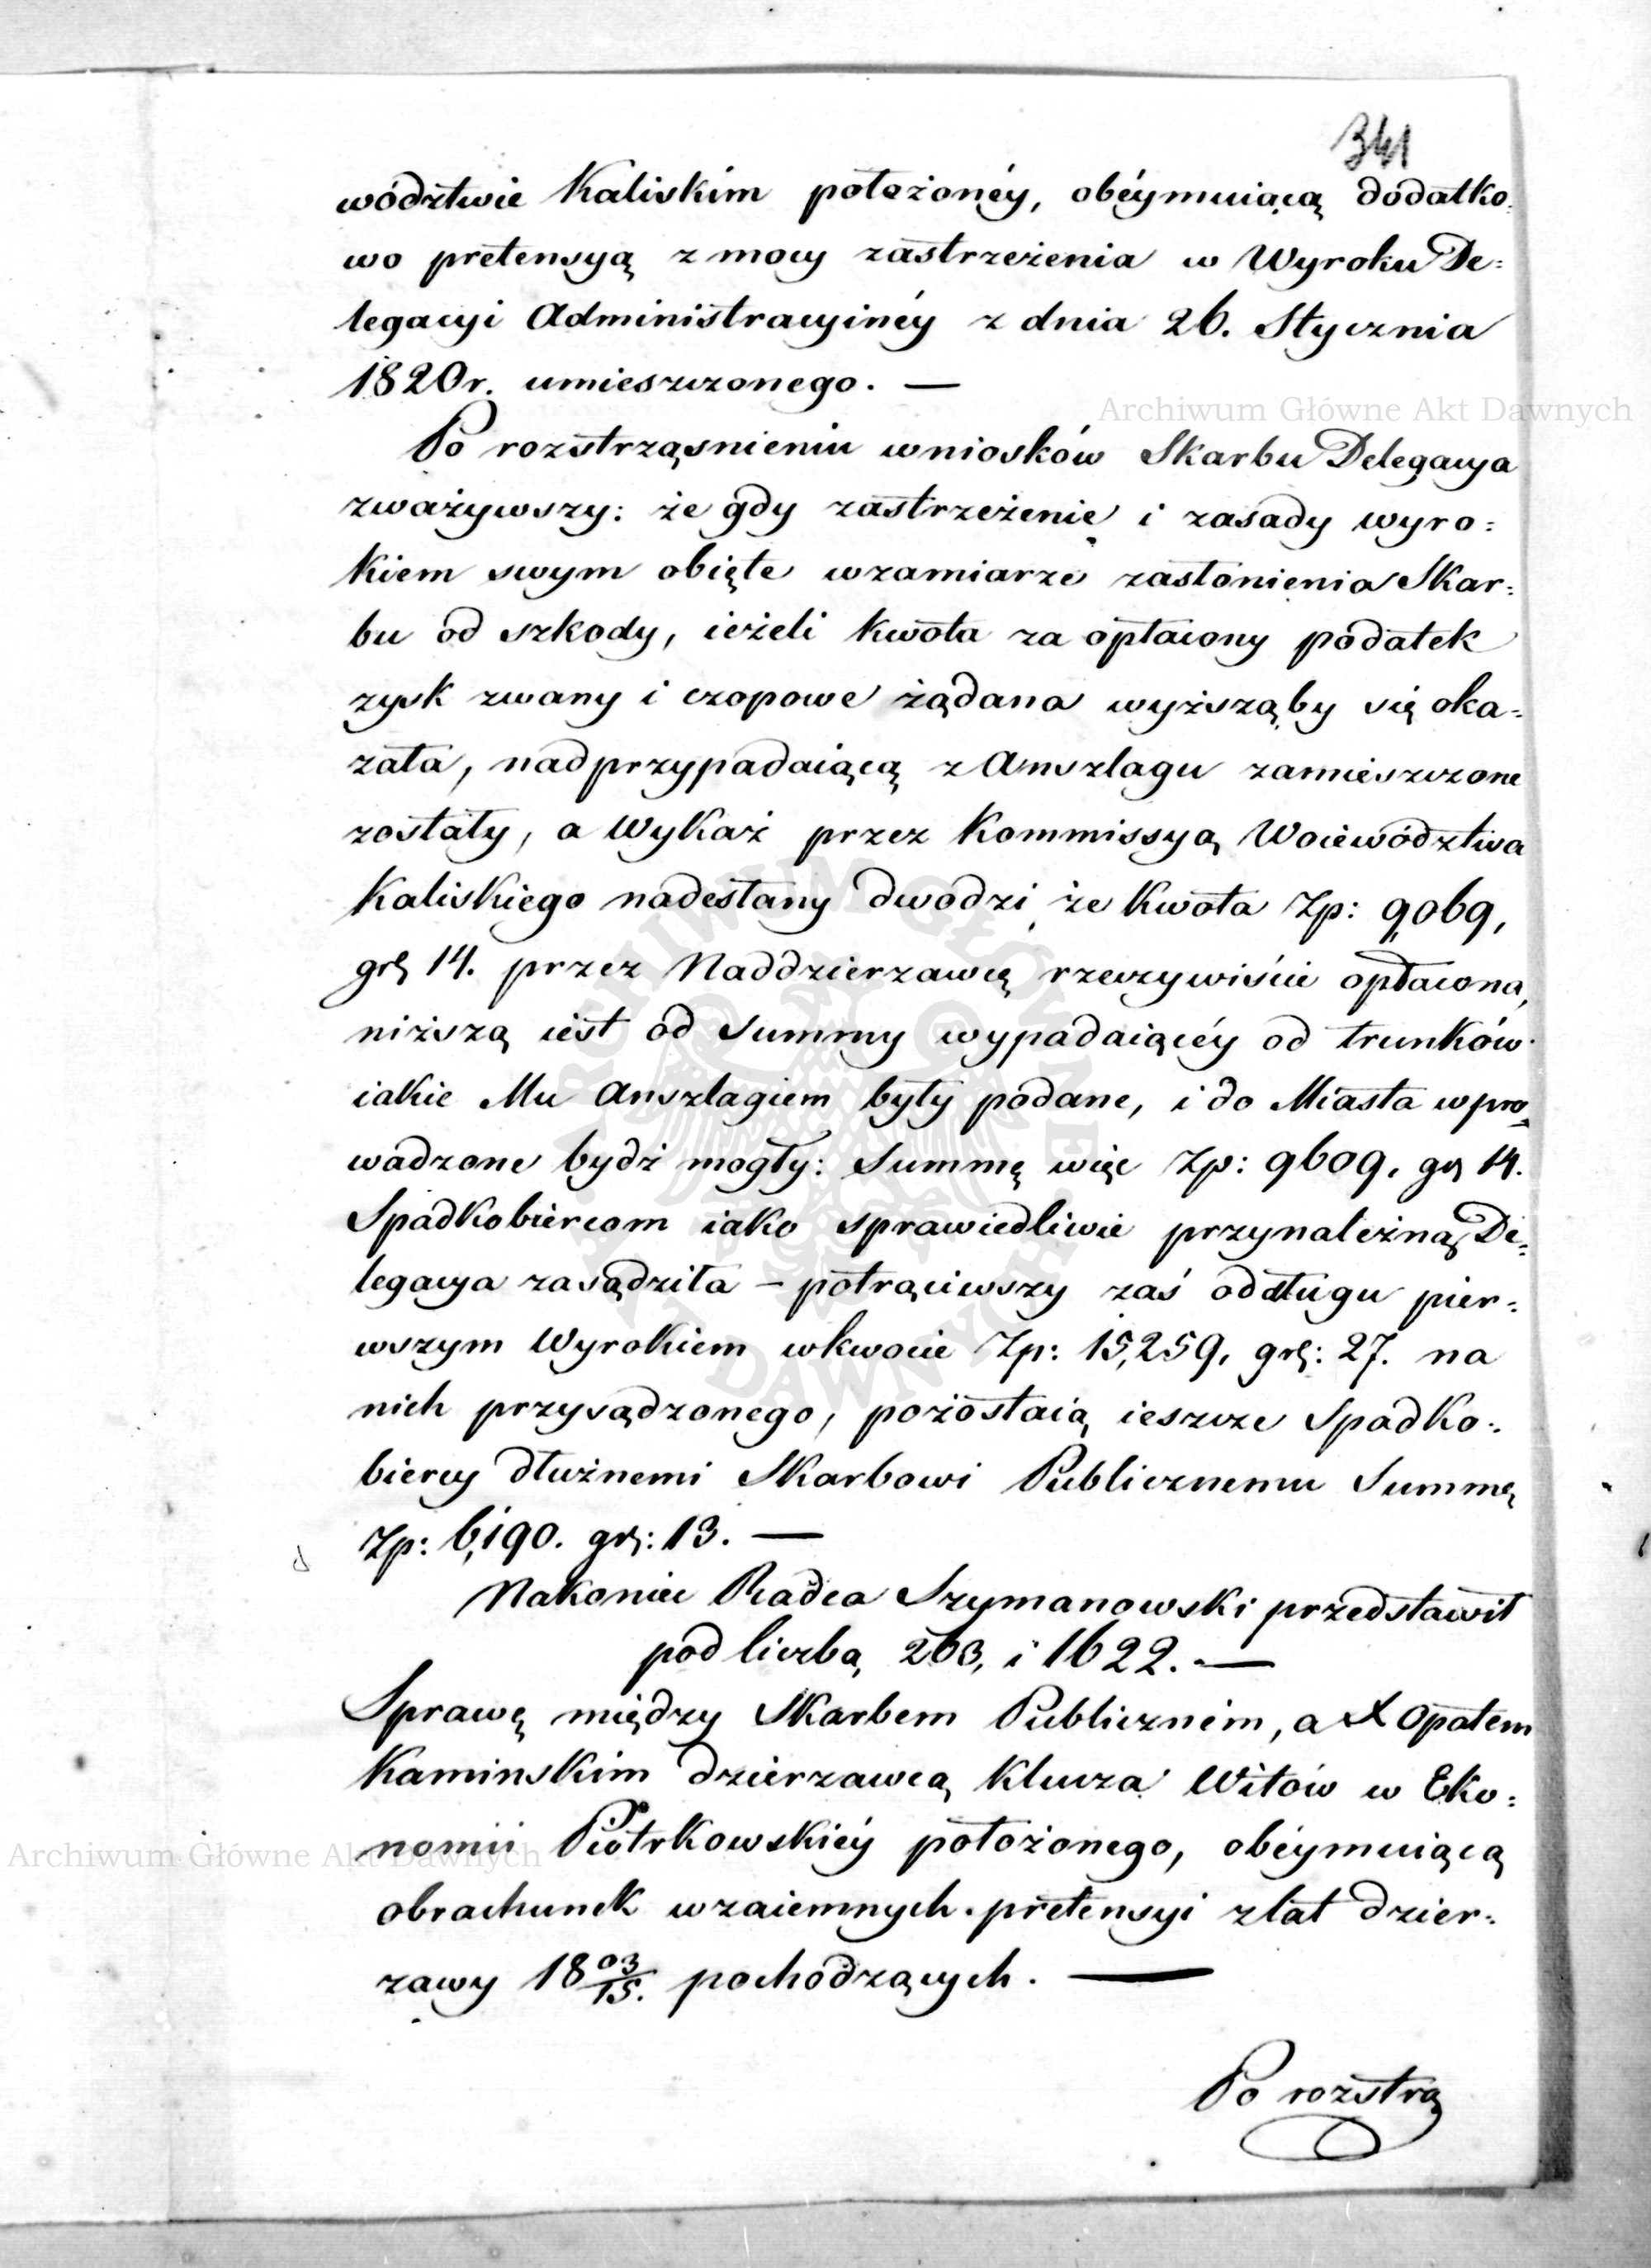 341
wództwie Kaliskim położonéy, obéymuiącą dodatko:
wo pretensyą z mocy zastrzeżenia w Wyroku De:
legacyi Administracyinéy z dnia 26. Stycznia
1820 r. umieszczonego. —
Po rozstrząsnieniu wniosków Skarbu Delegacya
zważywszy: że gdy zastrzeżenie i zasady wyro:
kiem swym obięte w zamiarze zasłonienia Skar:
bu od szkody, ieżeli kwota za opłacony podatek
zysk zwany i czopowe żądana wyższą by się oka:
zała, nad przypadaiącą z Anszlagu zamieszczone
zostały, a Wykaz przez Kommissyą Woiewództwa
Kaliskiego nadesłany dwodzi że kwota Zp: 9069,
gr 14. przez Naddzierzawcę rzeczywiście opłacona,
niższą iest od Summy wypadaiącéy od trunków
iakie Mu Anszlagiem były podane, i do Miasta wpro
wadzone bydź mogły: Summę więc Zp: 9609. gr 14.
Spadkobiercom iako sprawiedliwie przynależną De:
legacya zasądziła – potrąciwszy zaś od długu pier:
wszym Wyrokiem w kwocie Zp: 15,259, gr: 27. na
nich przysądzonego, pozostaią ieszcze Spadko:
biercy dłużnemi Skarbowi Publicznemu Summę
Zp: 6,190. gr: 13. —
Nakoniec Radca Szymanowski przedstawił
pod liczbą 203, i 1622. —
Sprawę między Skarbem Publicznem, a X Opatem
Kaminskim dzierzawcą Klucza Witów w Eko:
nomii Piotrkowskiéy położonego, obéymuiącą
obrachunek wzaiemnych pretensyi z lat dzier:
zawy 18 03/15. pochodzących. —
Po rozstrzą
Archiwum Główne Akt Dawnych
Archiwum Główne Akt Dawnych
ARCHIWUM GŁÓWNE AKT DAWNYCH